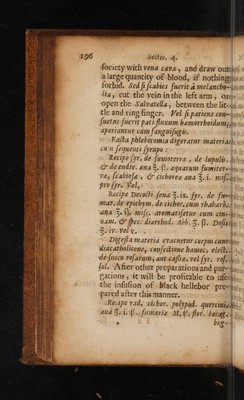 196 Sectio. 4.
society with vena cava, and draw out
a large quantity of blood, if nothing
forbid. Sed si scabies fuerit à melancho-
lia, cut the vein in the left arm, or
open the Salvatella, between the lit-
tle and ring finger. Vel si patient con-
suetus fuerit pati fluxum hæmorrhoidum,
aperiantur cum sanguisugis.
Facta phlebotomia digeratur materia
cum sequenti syrupo:
Recipe syr. de fumoterra, de lupulis,
& de endiv. ana ℥. ß. aquarum fumiter-
ræ, scabiosæ, & cichoreæ ana ℥. i. misc.
pro syr. Vel,
Recipe Decocti senæ ℥. ix. syr. de fu-
mar. de epithym. de cichor. cum rhabarb.
ana ℥. iß. misc. aromatisetur cum cin-
nam. & spec. diarrhod. Abb. ʒ. ß. Dosis
℥. iv. vel v.
Digesta materia evacuetur corpus cum
diacatholicone, confectione hamec, elect.
de succo rosarum, aut cassia, vel syr. ros.
sol. After other preparations and pur-
gations, it will be profitable to use
the infusion of black hellebor pre-
pared after this manner.
Recipe rad. cichor. polypod. quercini
ana ℥. i. ß. fumariæ M. ß. flor. borag.
bug-